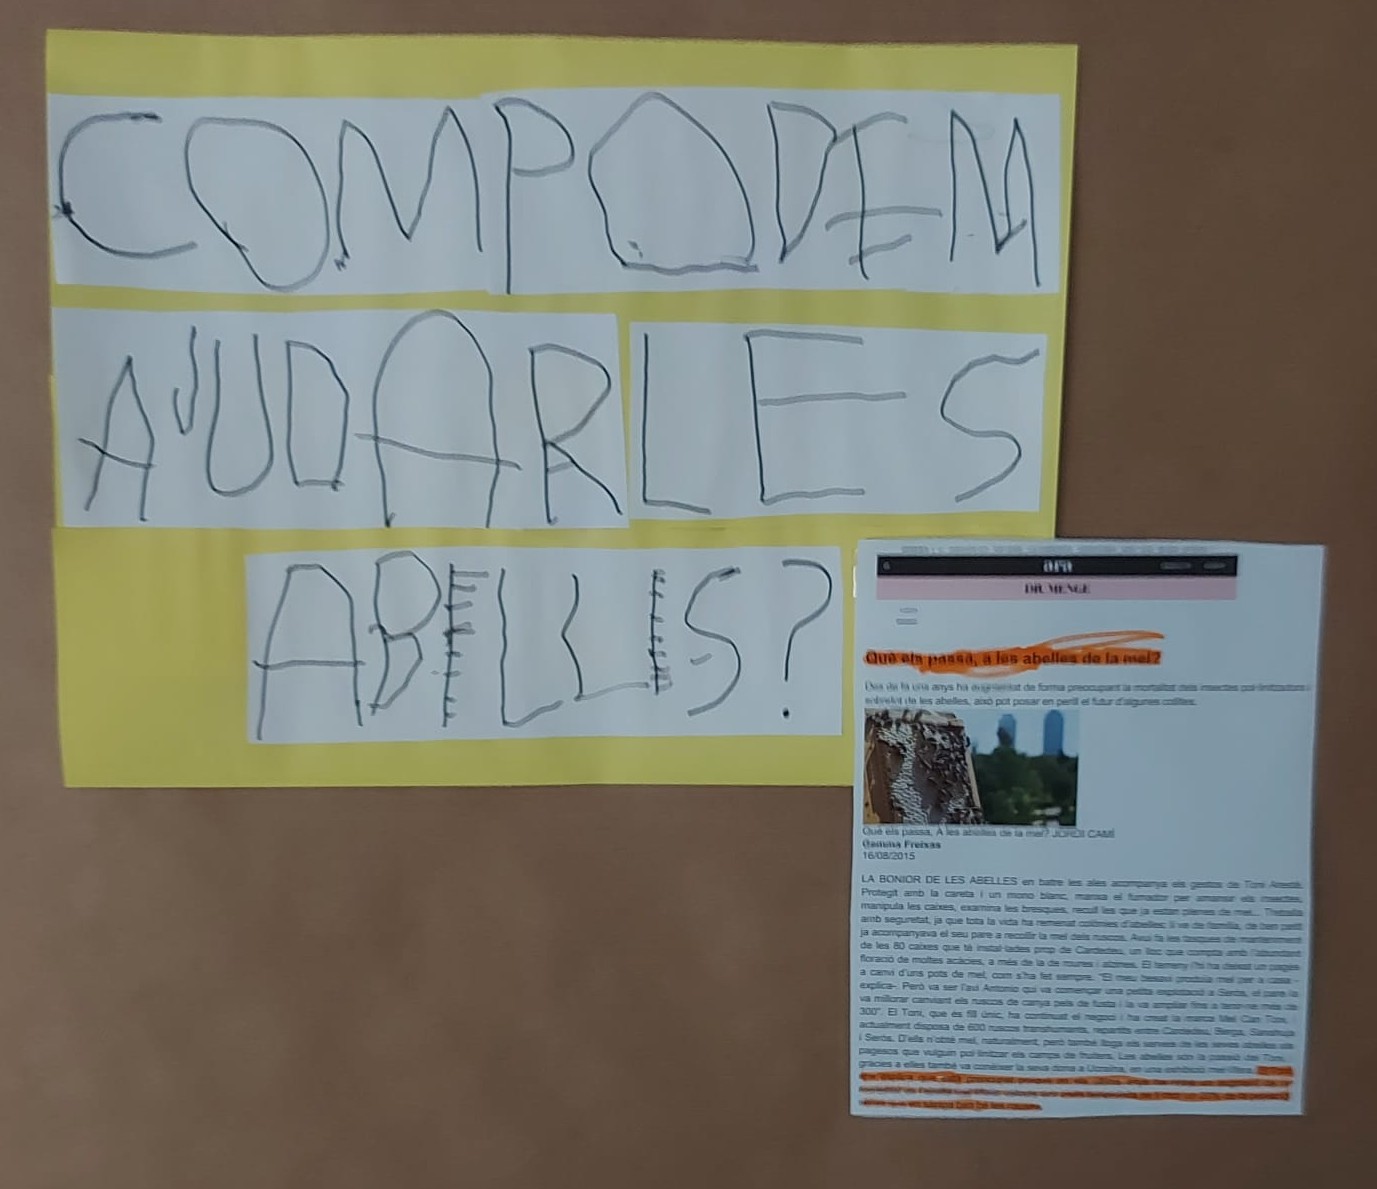 COM PODEM
AJUDAR LES
ABELLES?
ara
DIUMENGE
Què els passa, a les abelles de la mel?
Des de fa uns anys ha augmentat de forma preocupant la mortalitat dels insectes pol·linitzadors i
sobretot de les abelles, això pot posar en perill el futur d'algunes collites.
Què els passa, A les abelles de la mel? JORDI CAMÍ
Gemma Freixas
16/08/2015
LA BONIOR DE LES ABELLES en batre les ales acompanya els gestos de Toni
Protegit amb la careta i un mono blanc, manxa el fumador per amansir els insectes,
manipula les caixes, examina les bresques, recull les que ja estan plenes de mel... Treballa
amb seguretat, ja que tota la vida ha remenat colònies d'abelles: li ve de família, de ben petit
ja acompanyava el seu pare a recollir la mel dels ruscos. Avui fa les tasques de manteniment
de les 80 caixes que té instal·lades prop de Cardedeu, un lloc que compta amb l'abundant
floració de moltes acàcies, a més de la de mores i alzines. El terreny l'hi ha deixat un pagès
a canvi d'uns pots de mel, com s'ha fet sempre. "El meu besavi produïa mel per a casa -
explica-. Però va ser l'avi Antonio qui va començar una petita explotació a Seròs, el pare la
va millorar canviant els ruscos de canya pels de fusta i la va ampliar fins a tenir-ne més de
300". El Toni, que és fill únic, ha continuat el negoci i ha creat la marca Mel Can Toni, i
actualment disposa de 600 ruscos transhumants, repartits entre Cardedeu, Berga, Sanaüja
i Seròs. D'ells n'obté mel, naturalment, però també lloga els serveis de les seves abelles als
pagesos que vulguin pol·linitzar els camps de fruiters. Les abelles són la passió del Toni,
gràcies a elles també va conèixer la seva dona a Ucraïna, en una exhibició mel·lífera.